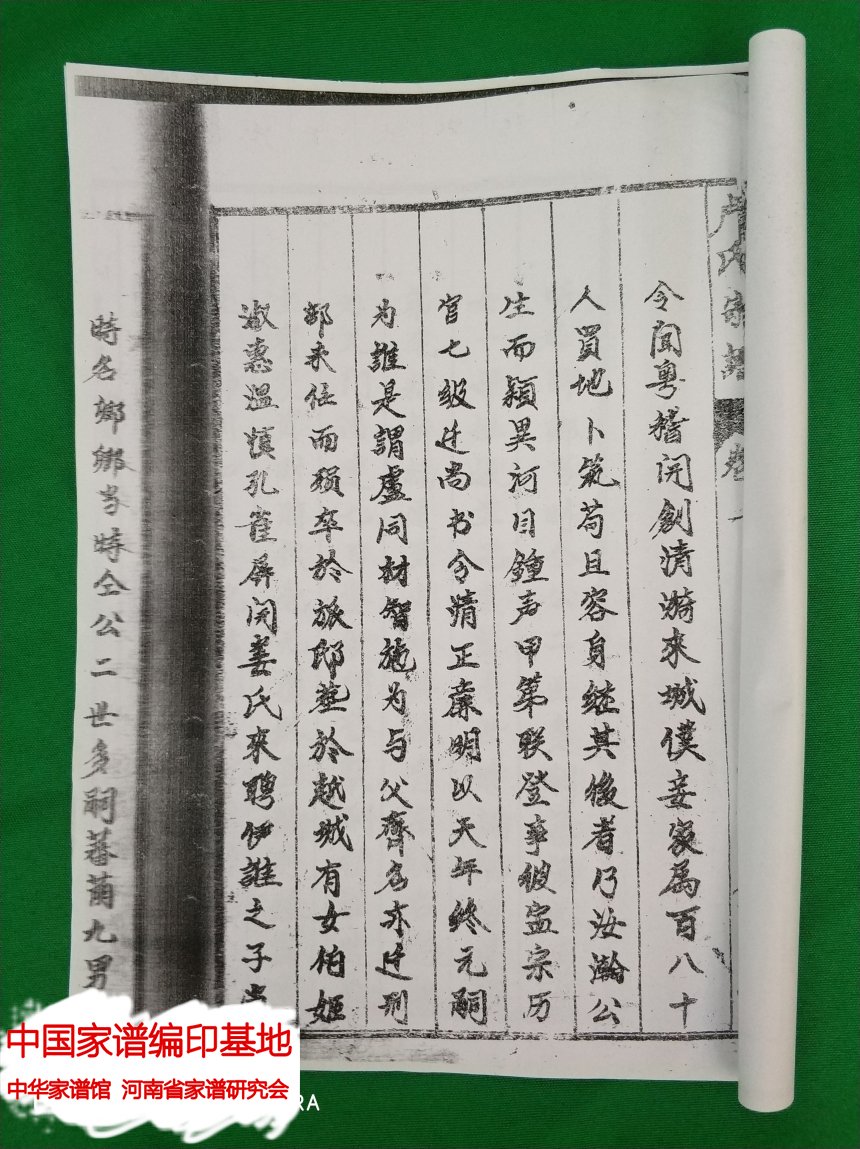 氏家譜
卷一
令聞粵稽開創清漪來城僕妾家属百八十
人買地卜筑苟且容身継其後者乃汝瀚公
生而颖異河目鐘声甲第联登事彼宗历
官七级迁尚书令清正廉明以天年终元嗣
为誰是謂盧同材智施为与父齊名亦迁刑
部未任而殒卒於旅邸塟於越城有女伯姬
淑惠温慎孔雀屏開姜氏來聘伊誰之子
時名鄉鄉当時仝公二世多嗣蕃九男
中国家谱编印基地
中华家谱馆 河南省家谱研究会
RA